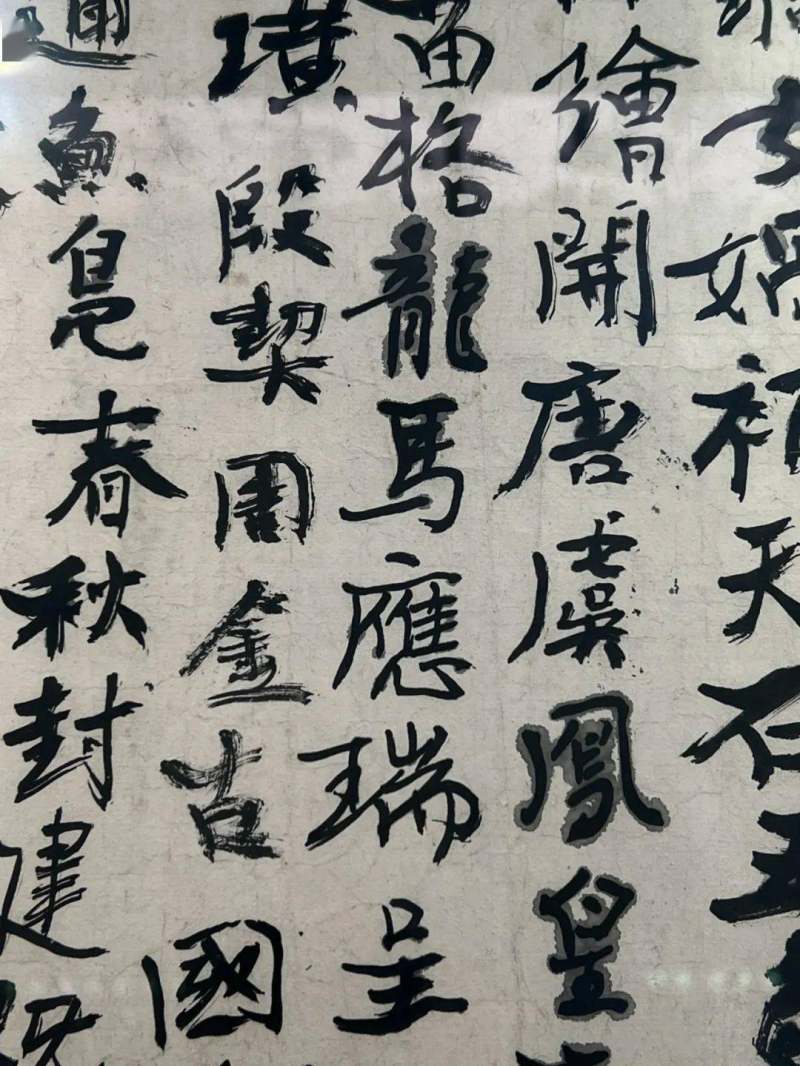 女媧補天石五
繪開唐虞鳳皇
苗格龍馬應瑞呈
璜殷契周金古國
通魚鳧春秋封建